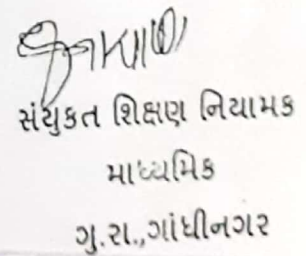 સંયુકત શિક્ષણ નિયામક
માધ્યમિક
ગુ.રા.,ગાંધીનગર